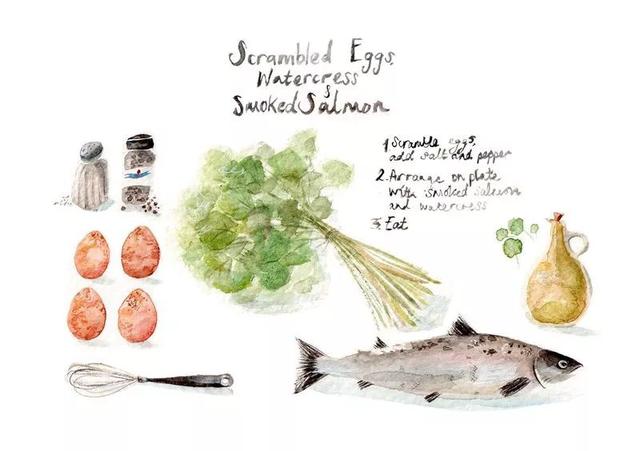 Scrambled Eggs,
Watercress
&
Smoked Salmon
1 Scramble eggs,
add salt and pepper
2. Arrange on plate
with smoked salmon
and watercress
3. Eat